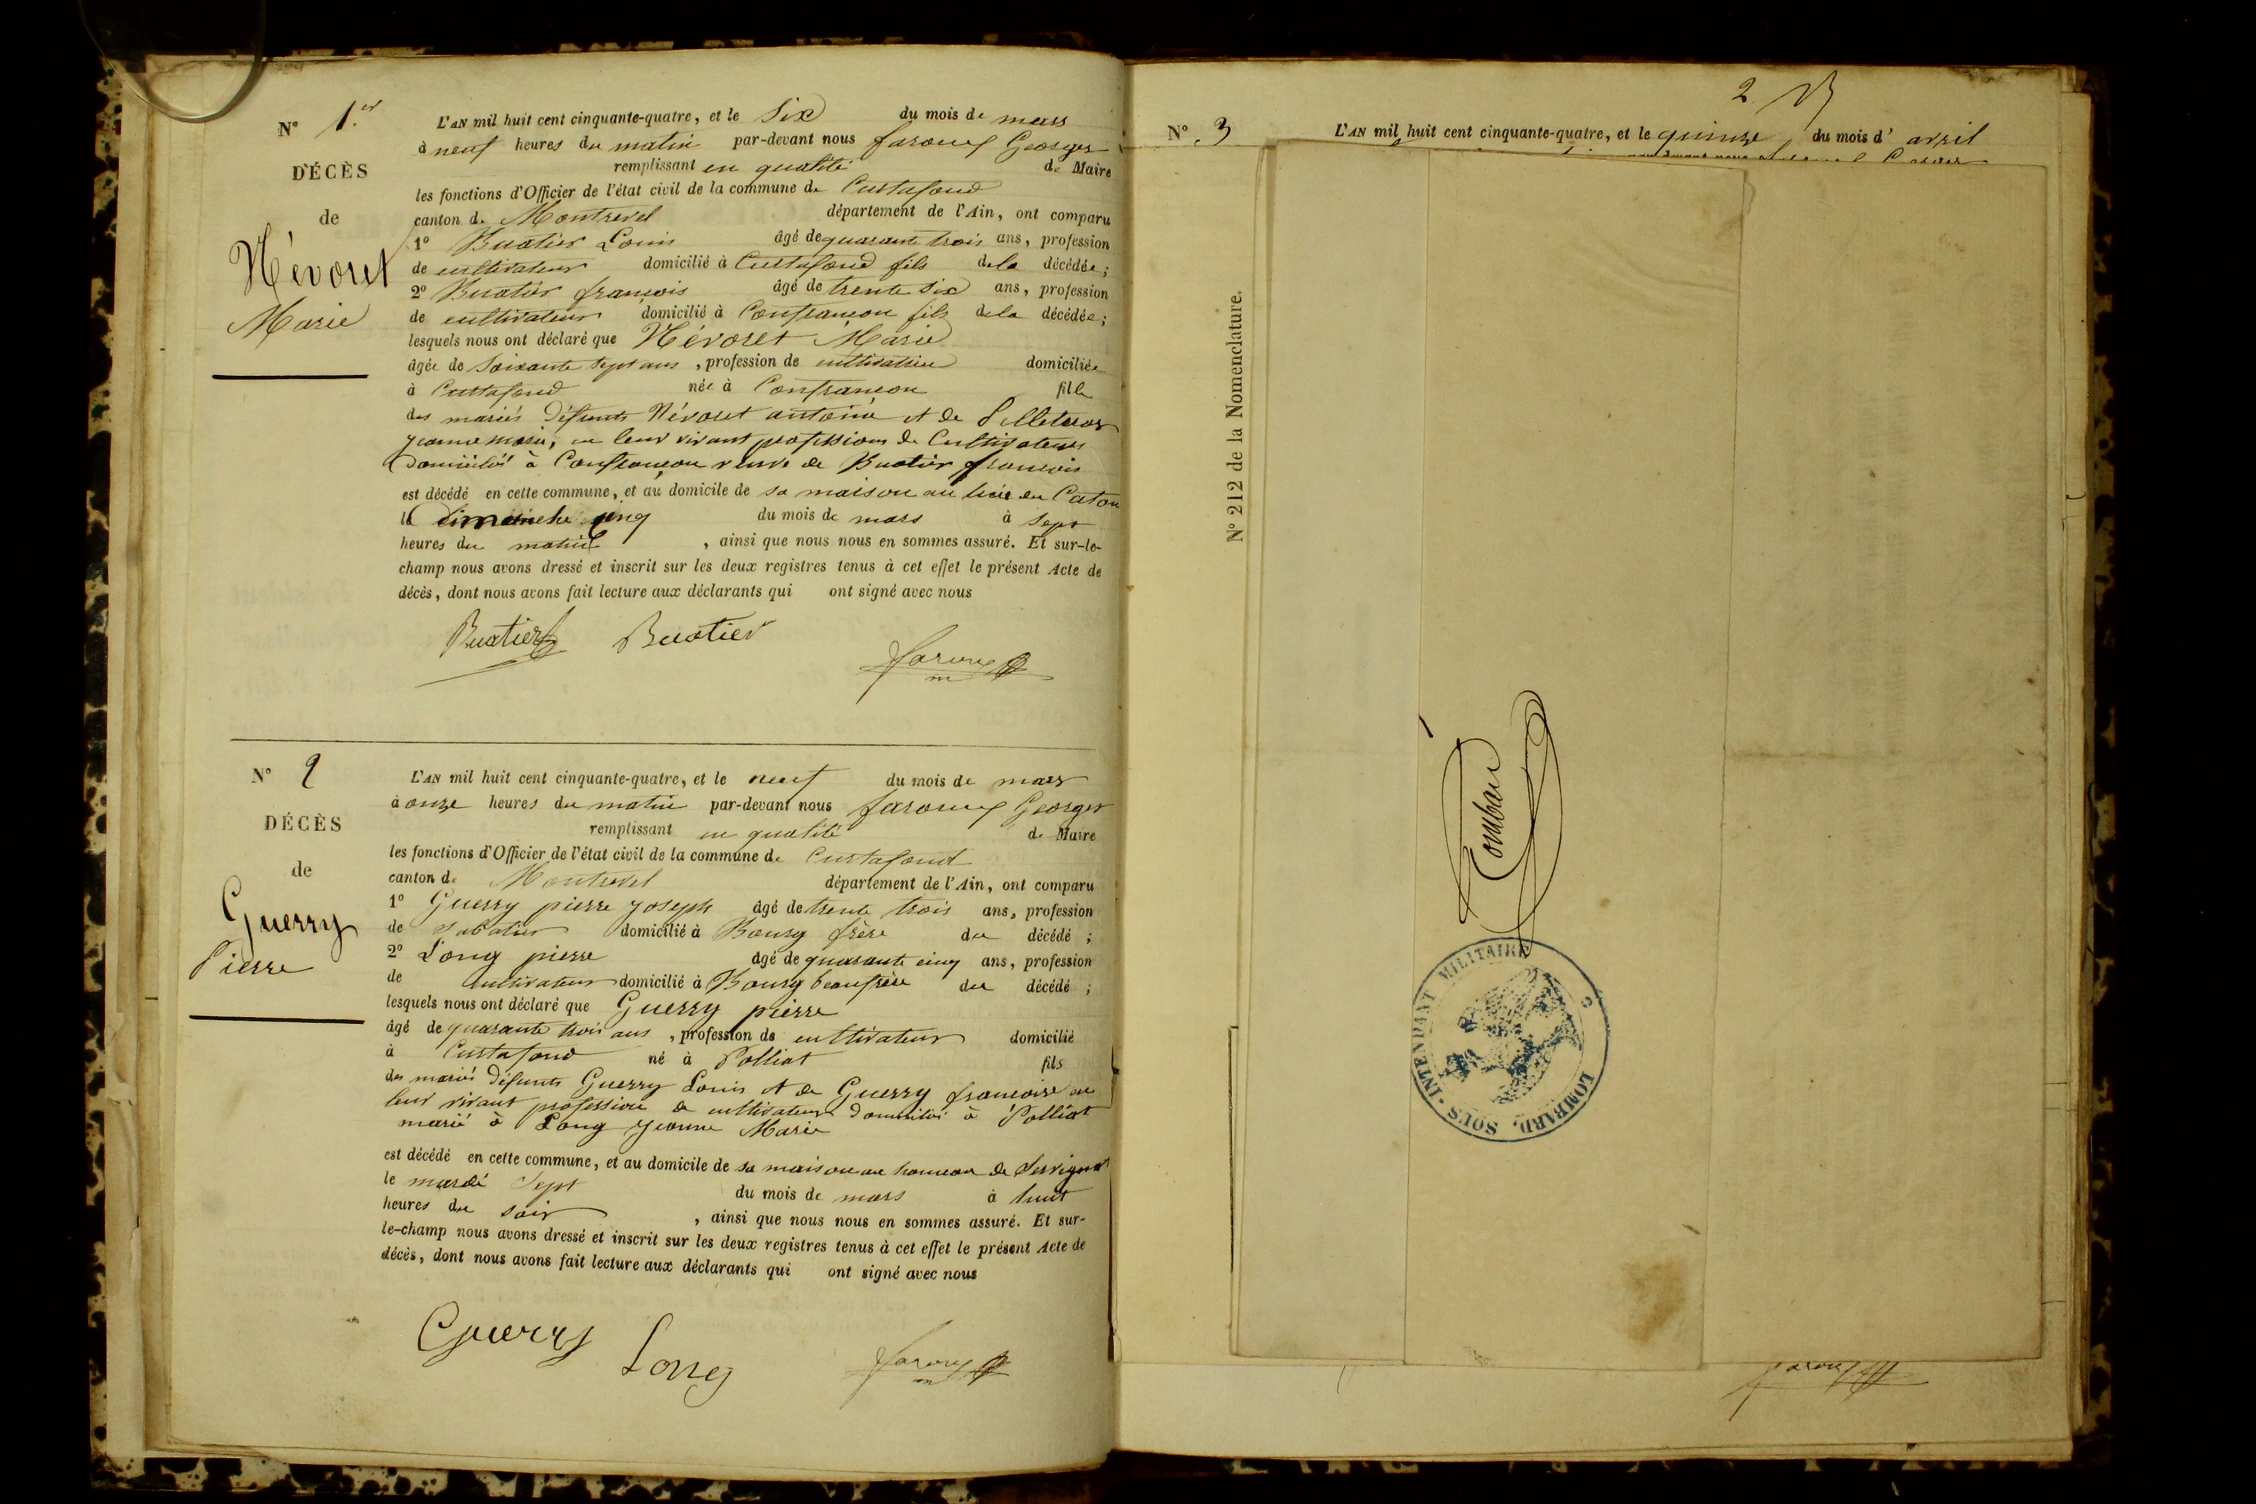 N° 1.er
DÉCÈS
de
Névoret
Marie
L'AN mil huit cent cinquante-quatre, et le Six du mois de mars
à neuf heures du matin par-devant nous farouf Georges
remplissant en qualité de Maire
les fonctions d'Officier de l'état civil de la commune de Curtafond
canton de Montrevel département de l'Ain, ont comparu
1° Buatier Louis âgé de quarante trois ans, profession
de cultivateur domicilié à Curtafond fils de la décédée;
2° Buatier françois âgé de trente six ans, profession
de cultivateur domicilié à Confrançon fils de la décédée;
lesquels nous ont déclaré que Névoret Marie
âgée de Soixante Sept ans, profession de cultivatrice domiciliée
à Curtafond née à Confrançon fille
des mariés défunts Névoret antoine et de
jeanne marie, en leur vivant profession de Cultivateurs
domiciliés à Confrançon veuve de Buatier françois
est décédé en cette commune, et au domicile de sa maison au lieu du Caton
le Dimanche cinq du mois de mars à Sept
heures du matin, ainsi que nous nous en sommes assuré. Et sur-le-
champ nous avons dressé et inscrit sur les deux registres tenus à cet effet le présent Acte de
décès, dont nous avons fait lecture aux déclarants qui ont signé avec nous
Buatier Buatier
N° 2
DÉCÈS
de
Guerry
Pierre
L'AN mil huit cent cinquante-quatre, et le neuf du mois de mars
à onze heures du matin par-devant nous farouf Georges
remplissant en qualité de Maire
les fonctions d'Officier de l'état civil de la commune de Curtafond
canton de Montrevel département de l'Ain, ont comparu
1° Guerry pierre joseph âgé de trente trois ans, profession
de sabotier domicilié à Bourg frère du décédé;
2° Long pierre âgé de quarante cinq ans, profession
de cultivateur domicilié à Bourg beaufrère du décédé;
lesquels nous ont déclaré que Guerry pierre
âgé de quarante trois ans, profession de cultivateur domicilié
à Curtafond né à Polliat fils
des mariés défunts Guerry Louis et de Guerry françoise en
leur vivant profession de cultivateurs domiciliés à Polliat
marié à Long jeanne Marie
est décédé en cette commune, et au domicile de sa maison au hameau de Servignat
le mardi Sept du mois de mars à huit
heures du soir, ainsi que nous nous en sommes assuré. Et sur-
le-champ nous avons dressé et inscrit sur les deux registres tenus à cet effet le présent Acte de
décès, dont nous avons fait lecture aux déclarants qui ont signé avec nous
Guerry Long
2
N° 3
L'AN mil huit cent cinquante-quatre, et le quinze du mois d'avril
N° 212 de la Nomenclature.
LOMBARD, SOUS-INTENDANT MILITAIRE